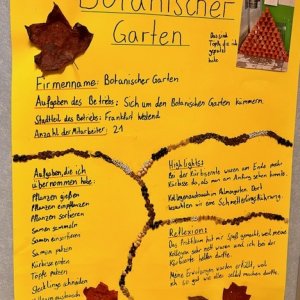 Botanischer
Garten
Das sind
Töpfe, die ich
habe
Firmenname: Botanischer Garten
Aufgaben des Betriebs: Sich um den Botanischen Garten kümmern.
Stadtteil des Betriebs: Frankfurt Westend
Anzahl der Mitarbeiter: 21
Aufgaben, die ich
übernommen habe:
Pflanzen gießen
Pflanzen eintopfen
Pflanzen sortieren
Samen sammeln
Samen sortieren
Samen putzen
Kürbisse ernten
Töpfe putzen
Stecklinge schneiden
Highlights:
Bei der Kürbisernte waren am Ende mehr
Kürbisse da, als man am Anfang sehen konnte.
Kollegenaustausch in Palmengarten. Dort
bekamen wir eine Schmetterlingsführung.
Reflexion:
Das Praktikum hat mir Spaß gemacht, weil meine
Kollegen sehr nett waren und ich bei der
Kürbisernte helfen durfte.
Meine Erwartungen wurden erfüllt, weil
ich so gut wie alles selbst machen durfte.